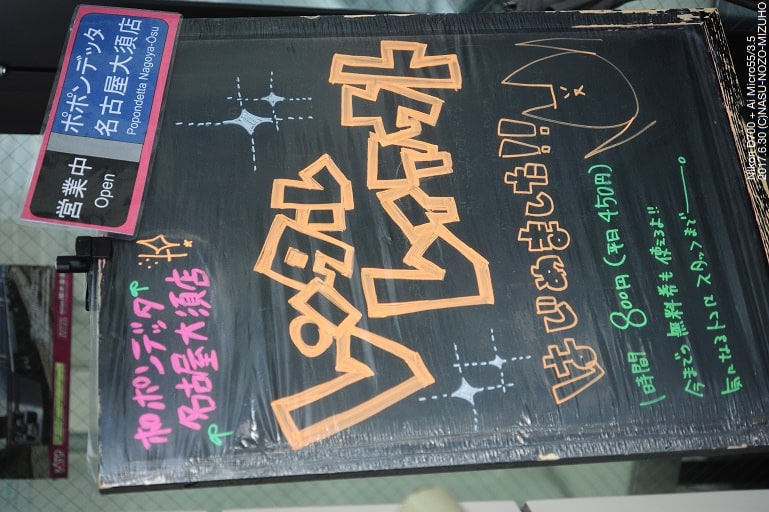 営業中 ポポンデッタ
名古屋大須店
Open Popondetta Nagoya-Osu
ポポンデッタ
名古屋大須店
レンタル
レイアウト
はじめました!!
1時間 800円(平日450円)
今までの無料券も使えるよ!!
気になるトコロ スタッフまで
Nikon D700 + Ai Micro55/3.5
2017.6.30 (C)NASU-NOZO-MIZUHO